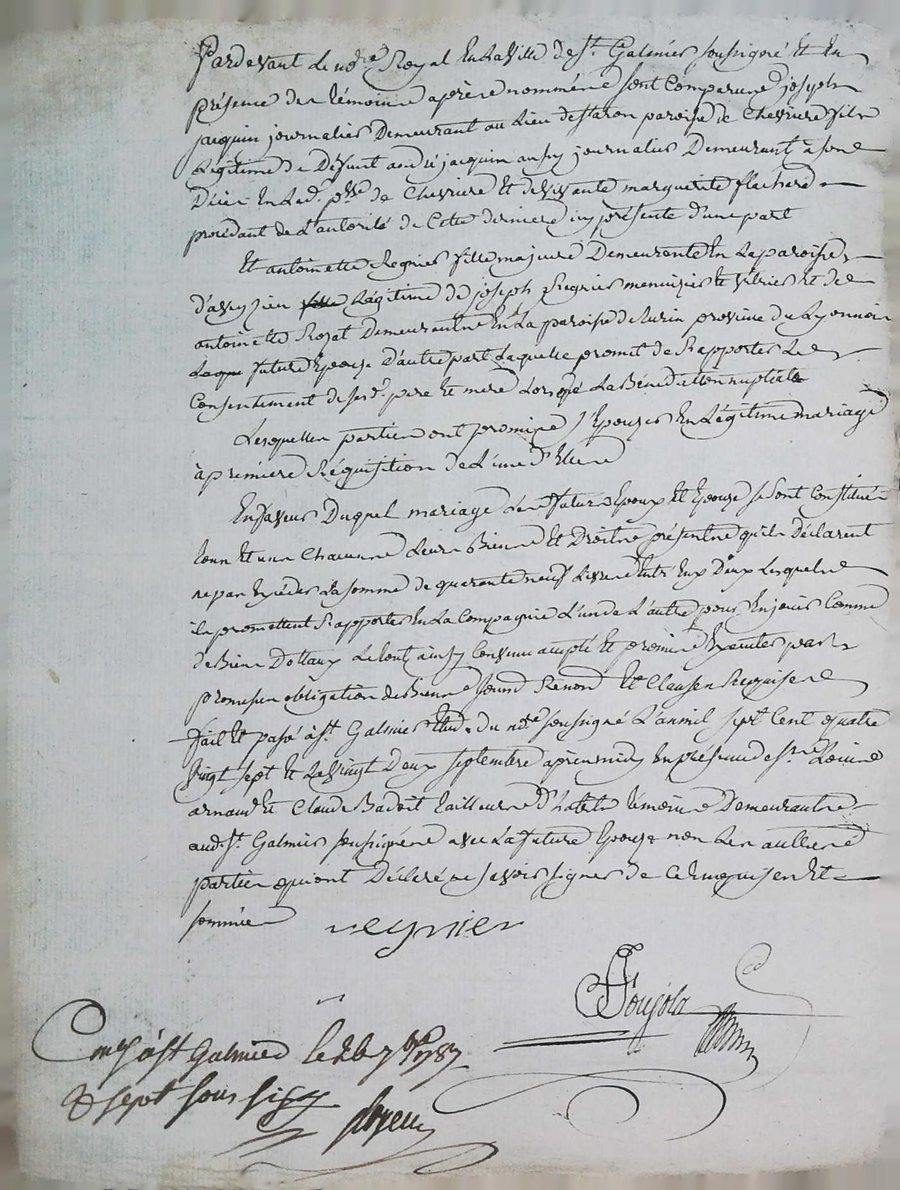 Pardevant Le no.re Royal En La Ville de St. Galmier soussigné Et En
présence des témoins après nommés sont Comparus joseph
jacquin journalier Demeurant au Lieu de paroisse de Chevrière fils
Légitime de Défunt andré jacquin aussy journalier Demeurant
En Lad. p.sse de Chevriere Et de vivante marguerite flachard
procédant de L'autorité de Cette derniere icy présente d'une part
Et antoinette Regnier fille majeure Demeurante En La paroisse
Légitime de joseph Regnier menuisier Et vitrier Et de
antoinette Rozat Demeurants En La paroisse de province du Lyonnois
future Epouze D'autre part Laquelle promet de Rapporter Le
Consentement de sesd. pere Et mere Lors de La Bénédiction nuptiale
Lesquelles parties ont promis s'Epouser En Légitime mariage
à première Réquisition de L'une d'Elles
En faveur Duquel mariage Les futurs Epoux Et Epouze se sont Constitués
tous Et un Chacuns Leurs Biens Et Droits présents qu'ils Déclarent
ne pas Excéder La somme de quarante neuf Livres Entre Eux Deux Lesquels
ils promettent Rapporter En La Compagnie L'un de L'autre pour En jouir Comme
de Biens Dottaux Le tout ainsy Convenu accepté Et promis Exécuter par
promesses obligation de Biens Renond Et Clauses Requises
fait Et passé à St. Galmier Etude du no.re soussigné L'an mil sept Cent quatre
vingt sept Et Le vingt Deux septembre après midy En présence de Srs.
arnaud Et Claude Badoit tailleurs D'habits témoins Demeurants
aud. St. Galmier soussignés avec La future Epouze non Les autres
parties qui ont Déclaré ne savoir signer de Ce Enquises Et
sommées
reynier
Conlé à St Galmier le 26 7bre 1787
sept sous six